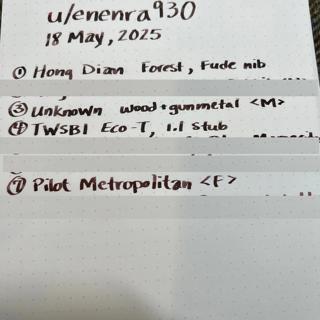 u/enenra930
18 May, 2025
① Hong Dian Forest, Fude nib
③ Unknown wood + gunmetal <M>
④ TWSBI Eco-T, 1.1 Stub
⑦ Pilot Metropolitan <F>